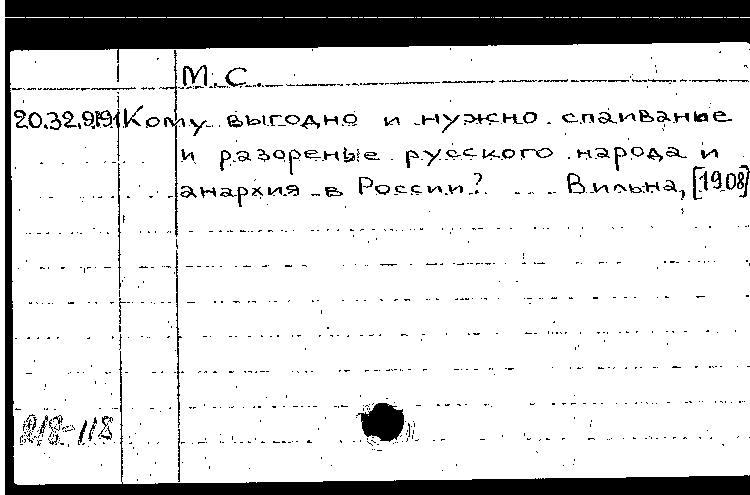 М.С.
20.32.9.191 Кому выгодно и нужно спаиванье
и разоренье русского народа и
анархия в России? Вильна, [1908]
218-118